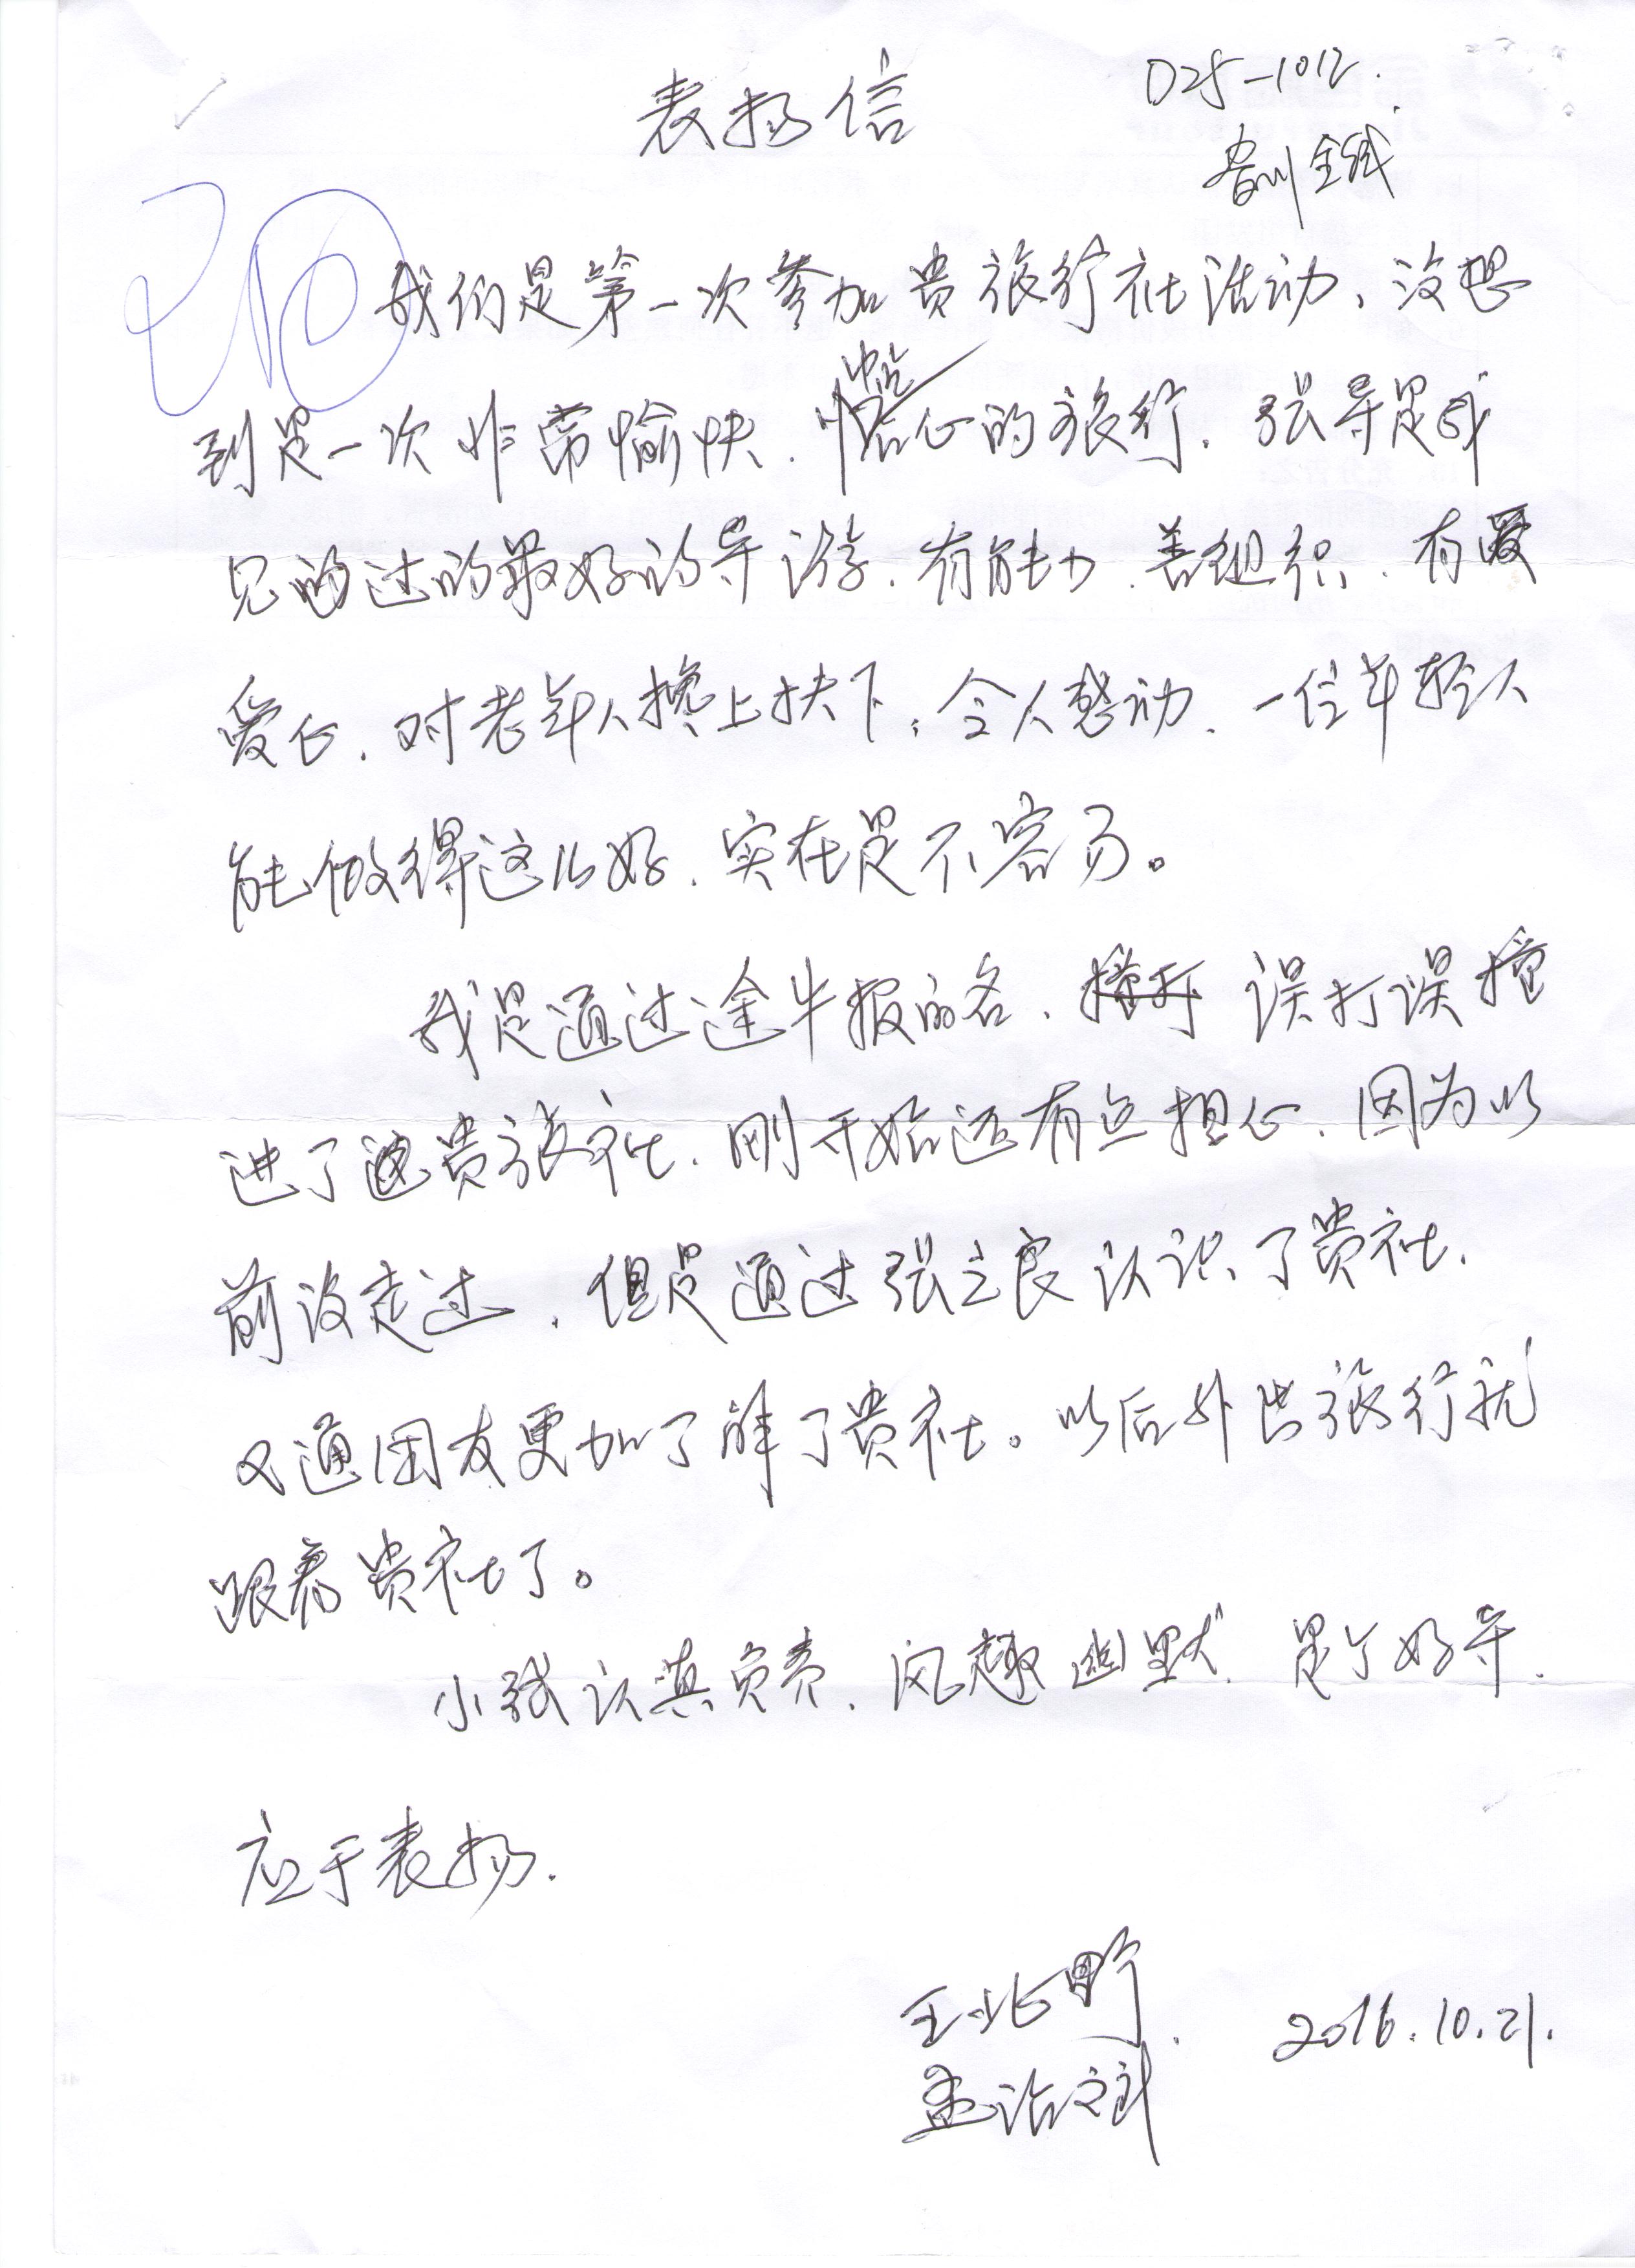 表扬信
D25-1012.
贵州全线
我们是第一次参加贵旅行社活动、没想
到是一次非常愉快、惬心的旅行. 张导是我
见的过的最好的导游. 有能力、善组织、有爱
爱心. 对老年人搀上扶下, 令人感动. 一位年轻人
能做得这么好. 实在是不容易。
我是通过途牛报的名. 误打误撞
进了贵旅社. 刚开始还有点担心. 因为以
前没走过. 但是通过张立良认识了贵社.
又通团友更加了解了贵社。以后外出旅行就
跟着贵社了。
小张认真负责. 风趣幽默. 是个好导.
应于表扬.
王北野. 2016.10.21.
孟治斌